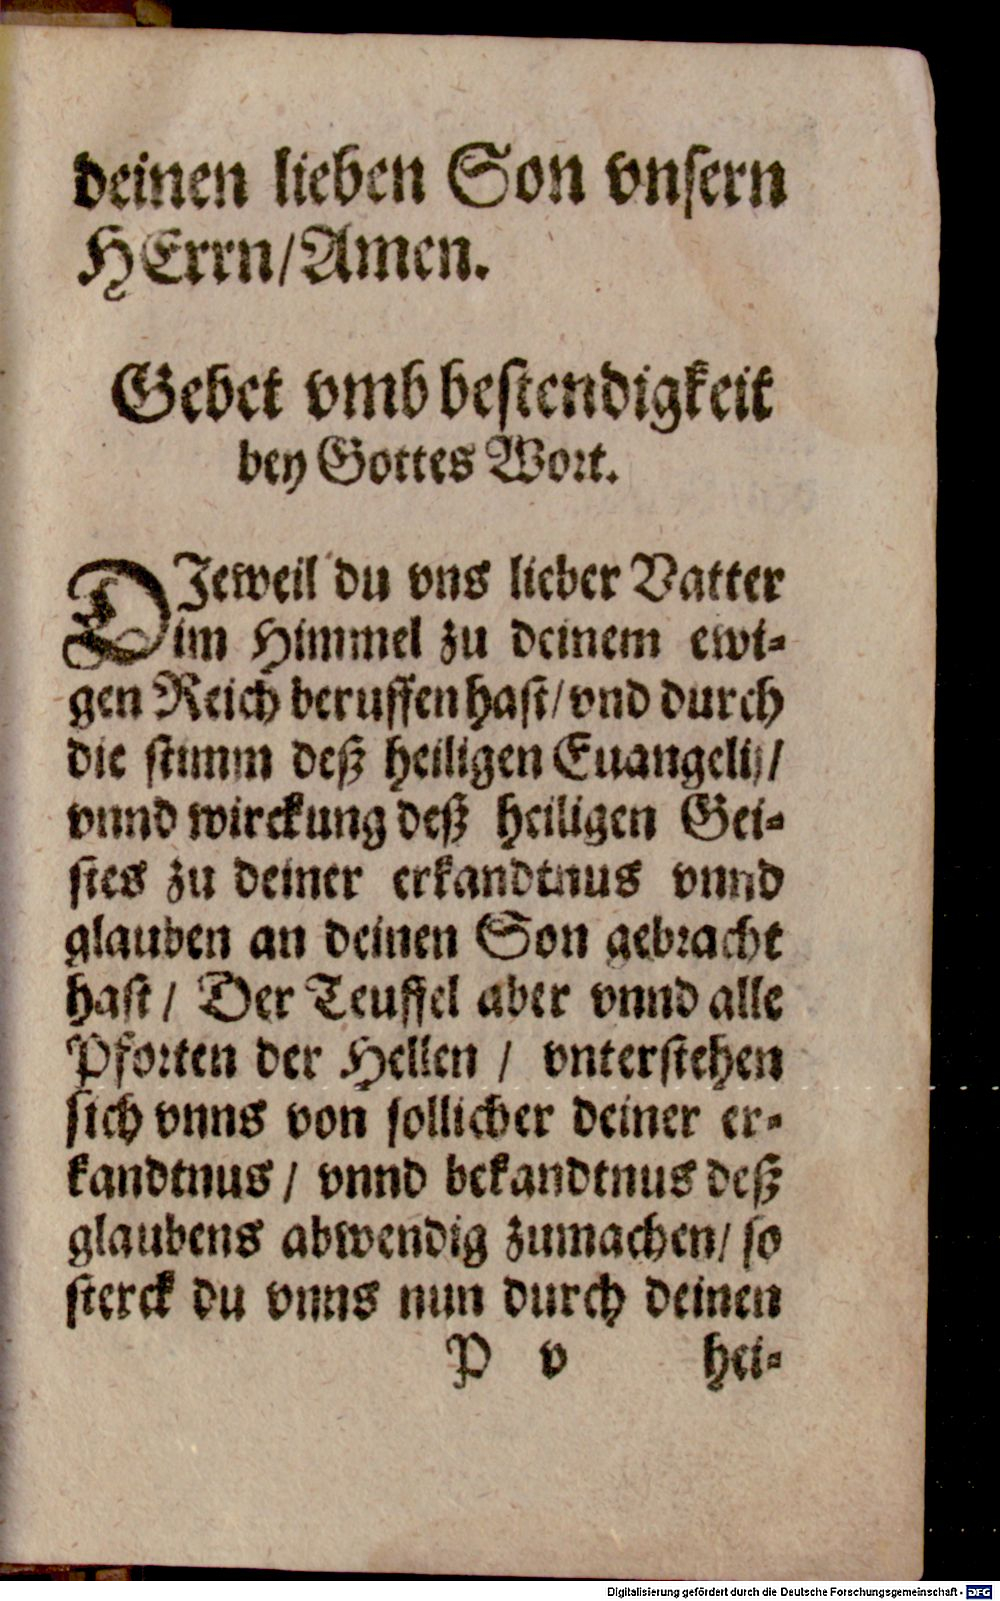 deinen lieben Son vnsern
HErrn/Amen.
Gebet vmb bestendigkeit
bey Gottes Wort.
DJeweil du vns lieber Vatter
im Himmel zu deinem ewi-
gen Reich beruffen hast/vnd durch
die stimm deß heiligen Euangelij/
vnnd wirckung deß heiligen Gei-
stes zu deiner erkandtnus vnnd
glauben an deinen Son gebracht
hast/ Der Teuffel aber vnnd alle
Pforten der Hellen / vnterstehen
sich vnns von sollicher deiner er-
kandtnus / vnnd bekandtnus deß
glaubens abwendig zumachen/ so
sterck du vnns nun durch deinen
P v hei-
Digitalisierung gefördert durch die Deutsche Forschungsgemeinschaft - DFG